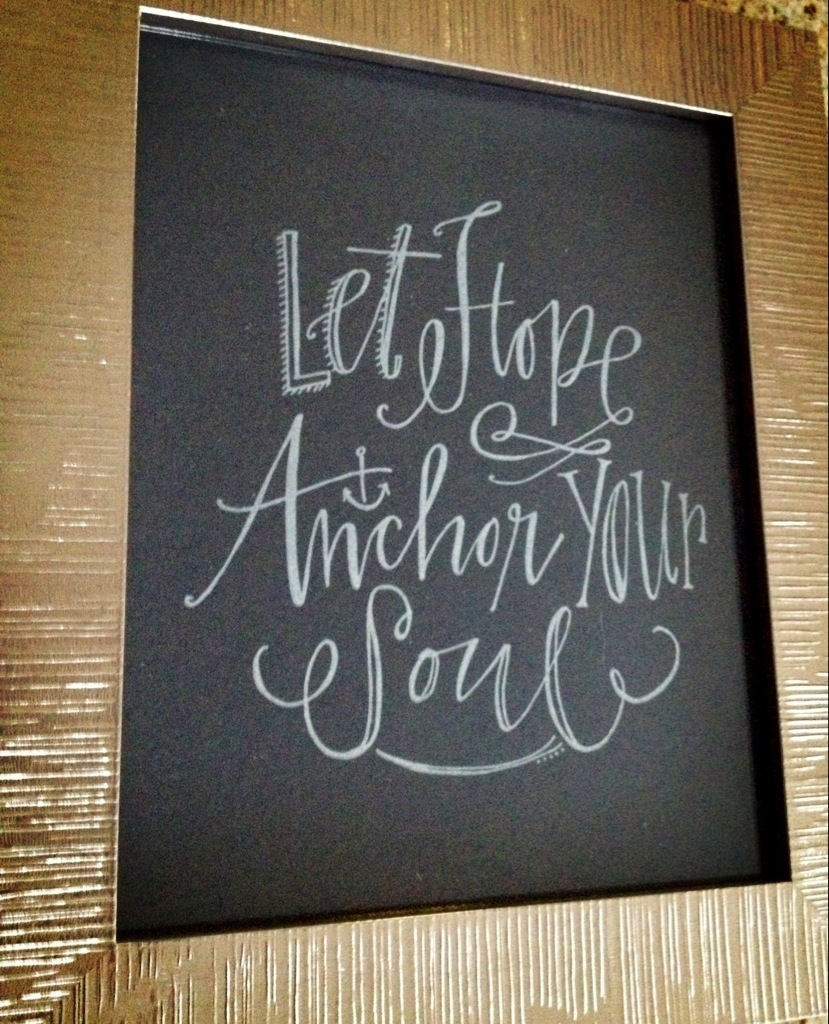 Let Hope
Anchor Your
Soul